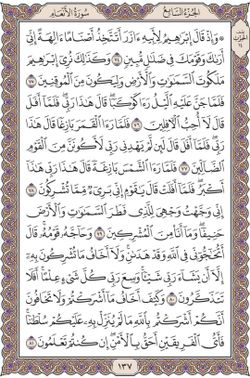 الجزء السابع سورة الأنعام
وَإِذْ قَالَ إِبْرَٰهِيمُ لِأَبِيهِ ءَازَرَ أَتَتَّخِذُ أَصْنَامًا ءَالِهَةً إِنِّىٓ
أَرَىٰكَ وَقَوْمَكَ فِى ضَلَٰلٍ مُّبِينٍ ٧٤ وَكَذَٰلِكَ نُرِىٓ إِبْرَٰهِيمَ
مَلَكُوتَ ٱلسَّمَٰوَٰتِ وَٱلْأَرْضِ وَلِيَكُونَ مِنَ ٱلْمُوقِنِينَ ٧٥
فَلَمَّا جَنَّ عَلَيْهِ ٱلَّيْلُ رَءَا كَوْكَبًا قَالَ هَٰذَا رَبِّى فَلَمَّآ أَفَلَ
قَالَ لَآ أُحِبُّ ٱلْءَافِلِينَ ٧٦ فَلَمَّا رَءَا ٱلْقَمَرَ بَازِغًا قَالَ هَٰذَا
رَبِّى فَلَمَّآ أَفَلَ قَالَ لَئِن لَّمْ يَهْدِنِى رَبِّى لَأَكُونَنَّ مِنَ ٱلْقَوْمِ
ٱلضَّآلِّينَ ٧٧ فَلَمَّا رَءَا ٱلشَّمْسَ بَازِغَةً قَالَ هَٰذَا رَبِّى هَٰذَآ
أَكْبَرُ فَلَمَّآ أَفَلَتْ قَالَ يَٰقَوْمِ إِنِّى بَرِىٓءٌ مِّمَّا تُشْرِكُونَ ٧٨
إِنِّى وَجَّهْتُ وَجْهِىَ لِلَّذِى فَطَرَ ٱلسَّمَٰوَٰتِ وَٱلْأَرْضَ
حَنِيفًا وَمَآ أَنَا۠ مِنَ ٱلْمُشْرِكِينَ ٧٩ وَحَآجَّهُۥ قَوْمُهُۥ قَالَ
أَتُحَٰٓجُّوٓنِّى فِى ٱللَّهِ وَقَدْ هَدَىٰنِ وَلَآ أَخَافُ مَا تُشْرِكُونَ بِهِۦٓ
إِلَّآ أَن يَشَآءَ رَبِّى شَيْـًٔا وَسِعَ رَبِّى كُلَّ شَىْءٍ عِلْمًا أَفَلَا
تَتَذَكَّرُونَ ٨٠ وَكَيْفَ أَخَافُ مَآ أَشْرَكْتُمْ وَلَا تَخَافُونَ
أَنَّكُمْ أَشْرَكْتُم بِٱللَّهِ مَا لَمْ يُنَزِّلْ بِهِۦ عَلَيْكُمْ سُلْطَٰنًا
فَأَىُّ ٱلْفَرِيقَيْنِ أَحَقُّ بِٱلْأَمْنِ إِن كُنتُمْ تَعْلَمُونَ ٨١
١٣٧